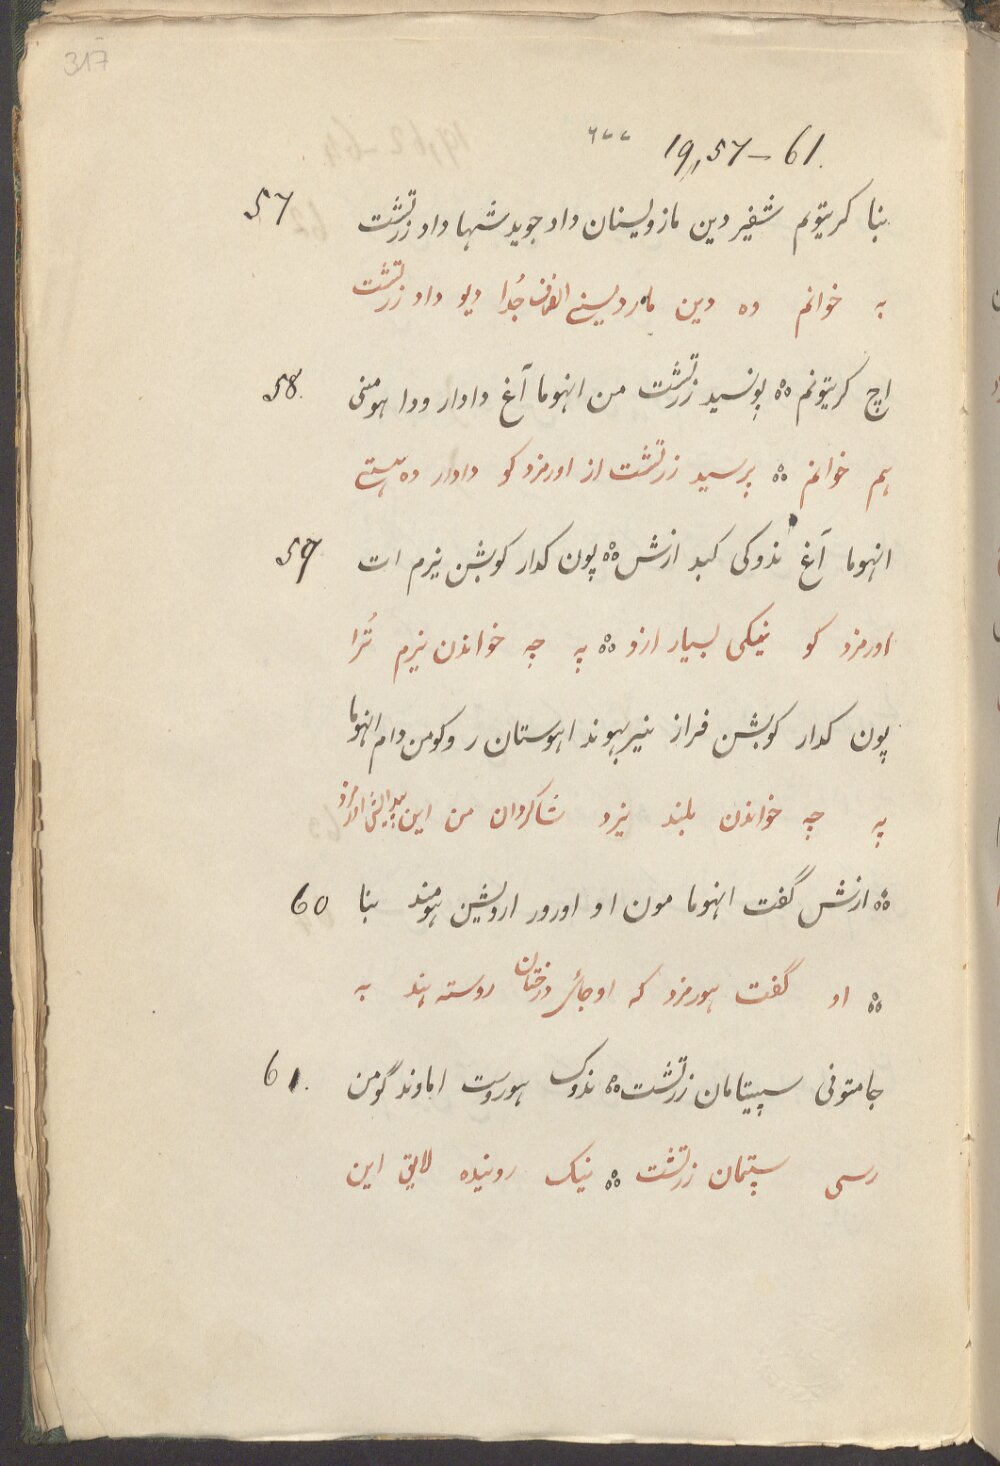 317
19,, 57 – 61.
57 بنا کریتونم شفیر دین مازدیسنان داد جوید شیها داد زرتشت
به خوانم ده دین مازدیسنے جُدا دیو داد زرتشت
58. اچ کریتونم ؞ پونسید زرتشت من انهوما آغ دادار ودا هومنی
هم خوانم ؞ پرسید زرتشت از اورمزد کو دادار ده هستے
59 انهوما آغ ندوکی کبد ازش ؞ پون کدار کوبشن یزم ات
اورمزد کو نیکی بسیار ازو ؞ په چه خواندن یزم تُرا
پون کدار کوبشن فراز اهوستان ر وکومن دام انهوما
په چه خواندن بلند یزد شاکردان من این پیدایش اورمزد
60 ؞ ازش گفت انهوما مون او اورور ارویشن هومند بنا
؞ او گفت هورمزد که اوجائی درختان روسته هند به
61. جامتونی سپیتامان زرتشت ؞ ندوک هوروست اماوند گومن
رسی سپتمان زرتشت ؞ نیک رونیده لایق این